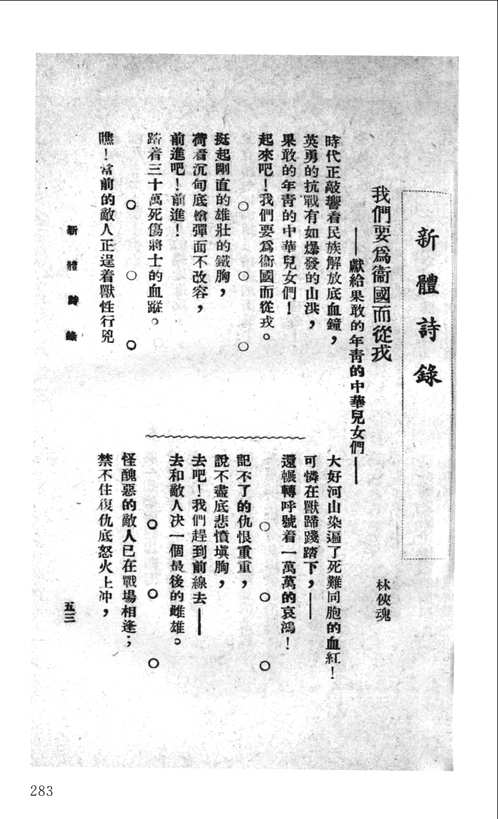 新體詩錄
我們要爲衞國而從戎
——獻給果敢的年青的中華兒女們——
林俠魂
時代正敲響着民族解放底血鐘，
英勇的抗戰有如爆發的山洪，
果敢的年青的中華兒女們！
起來吧！我們要爲衞國而從戎。
○ ○ ○
挺起剛直的雄壯的鐵胸，
荷着沉甸底槍彈面不改容，
前進吧！前進！
踏着三十萬死傷將士的血蹤。
○ ○ ○
瞧！當前的敵人正逞着獸性行兇
大好河山染遍了死難同胞的血紅！
可憐在獸蹄踐踏下，——
還輾轉呼號着一萬萬的哀鴻！
○ ○ ○
記不了的仇恨重重，
說不盡底悲憤塡胸，
去吧！我們趕到前線去——
去和敵人决一個最後的雌雄。
○ ○ ○
怪醜惡的敵人已在戰場相逢；
禁不住復仇底怒火上冲，
新體詩錄
五三
283